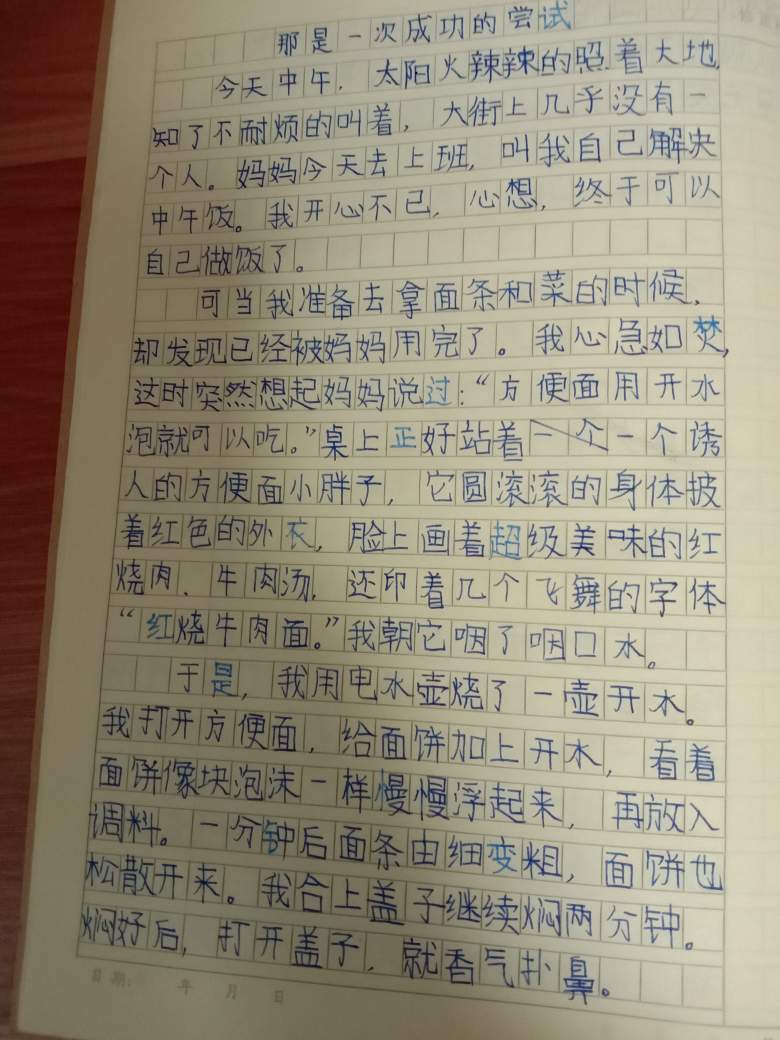 那是一次成功的尝试
今天中午，太阳火辣辣的照着大地，
知了不耐烦的叫着，大街上几乎没有一
个人。妈妈今天去上班，叫我自己解决
中午饭。我开心不已，心想，终于可以
自己做饭了。
可当我准备去拿面条和菜的时候，
却发现已经被妈妈用完了。我心急如焚，
这时突然想起妈妈说过：“方便面用开水
泡就可以吃。”桌上正好站着一个一个诱
人的方便面小胖子，它圆滚滚的身体披
着红色的外衣，脸上画着超级美味的红
烧肉、牛肉汤，还印着几个飞舞的字体
“红烧牛肉面。”我朝它咽了咽口水。
于是，我用电水壶烧了一壶开水。
我打开方便面，给面饼加上开水，看着
面饼像块泡沫一样慢慢浮起来，再放入
调料。一分钟后面条由细变粗，面饼也
松散开来。我合上盖子继续焖两分钟。
焖好后，打开盖子，就香气扑鼻。
日期： 年 月 日